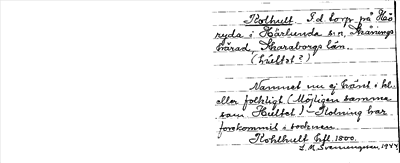 Kolhult. F.d. torp på Hås
ryda i Härlunda s:n, Skånings
härad, Skaraborgs län.
(hultet?)
Namnet nu ej känt i kel.
eller folkligt (Möjligen samma
som Hultet). Kolning har
förekommit i socknen.
Kohlhult hfl. 1800.
L. M. Svenungsson, 1944